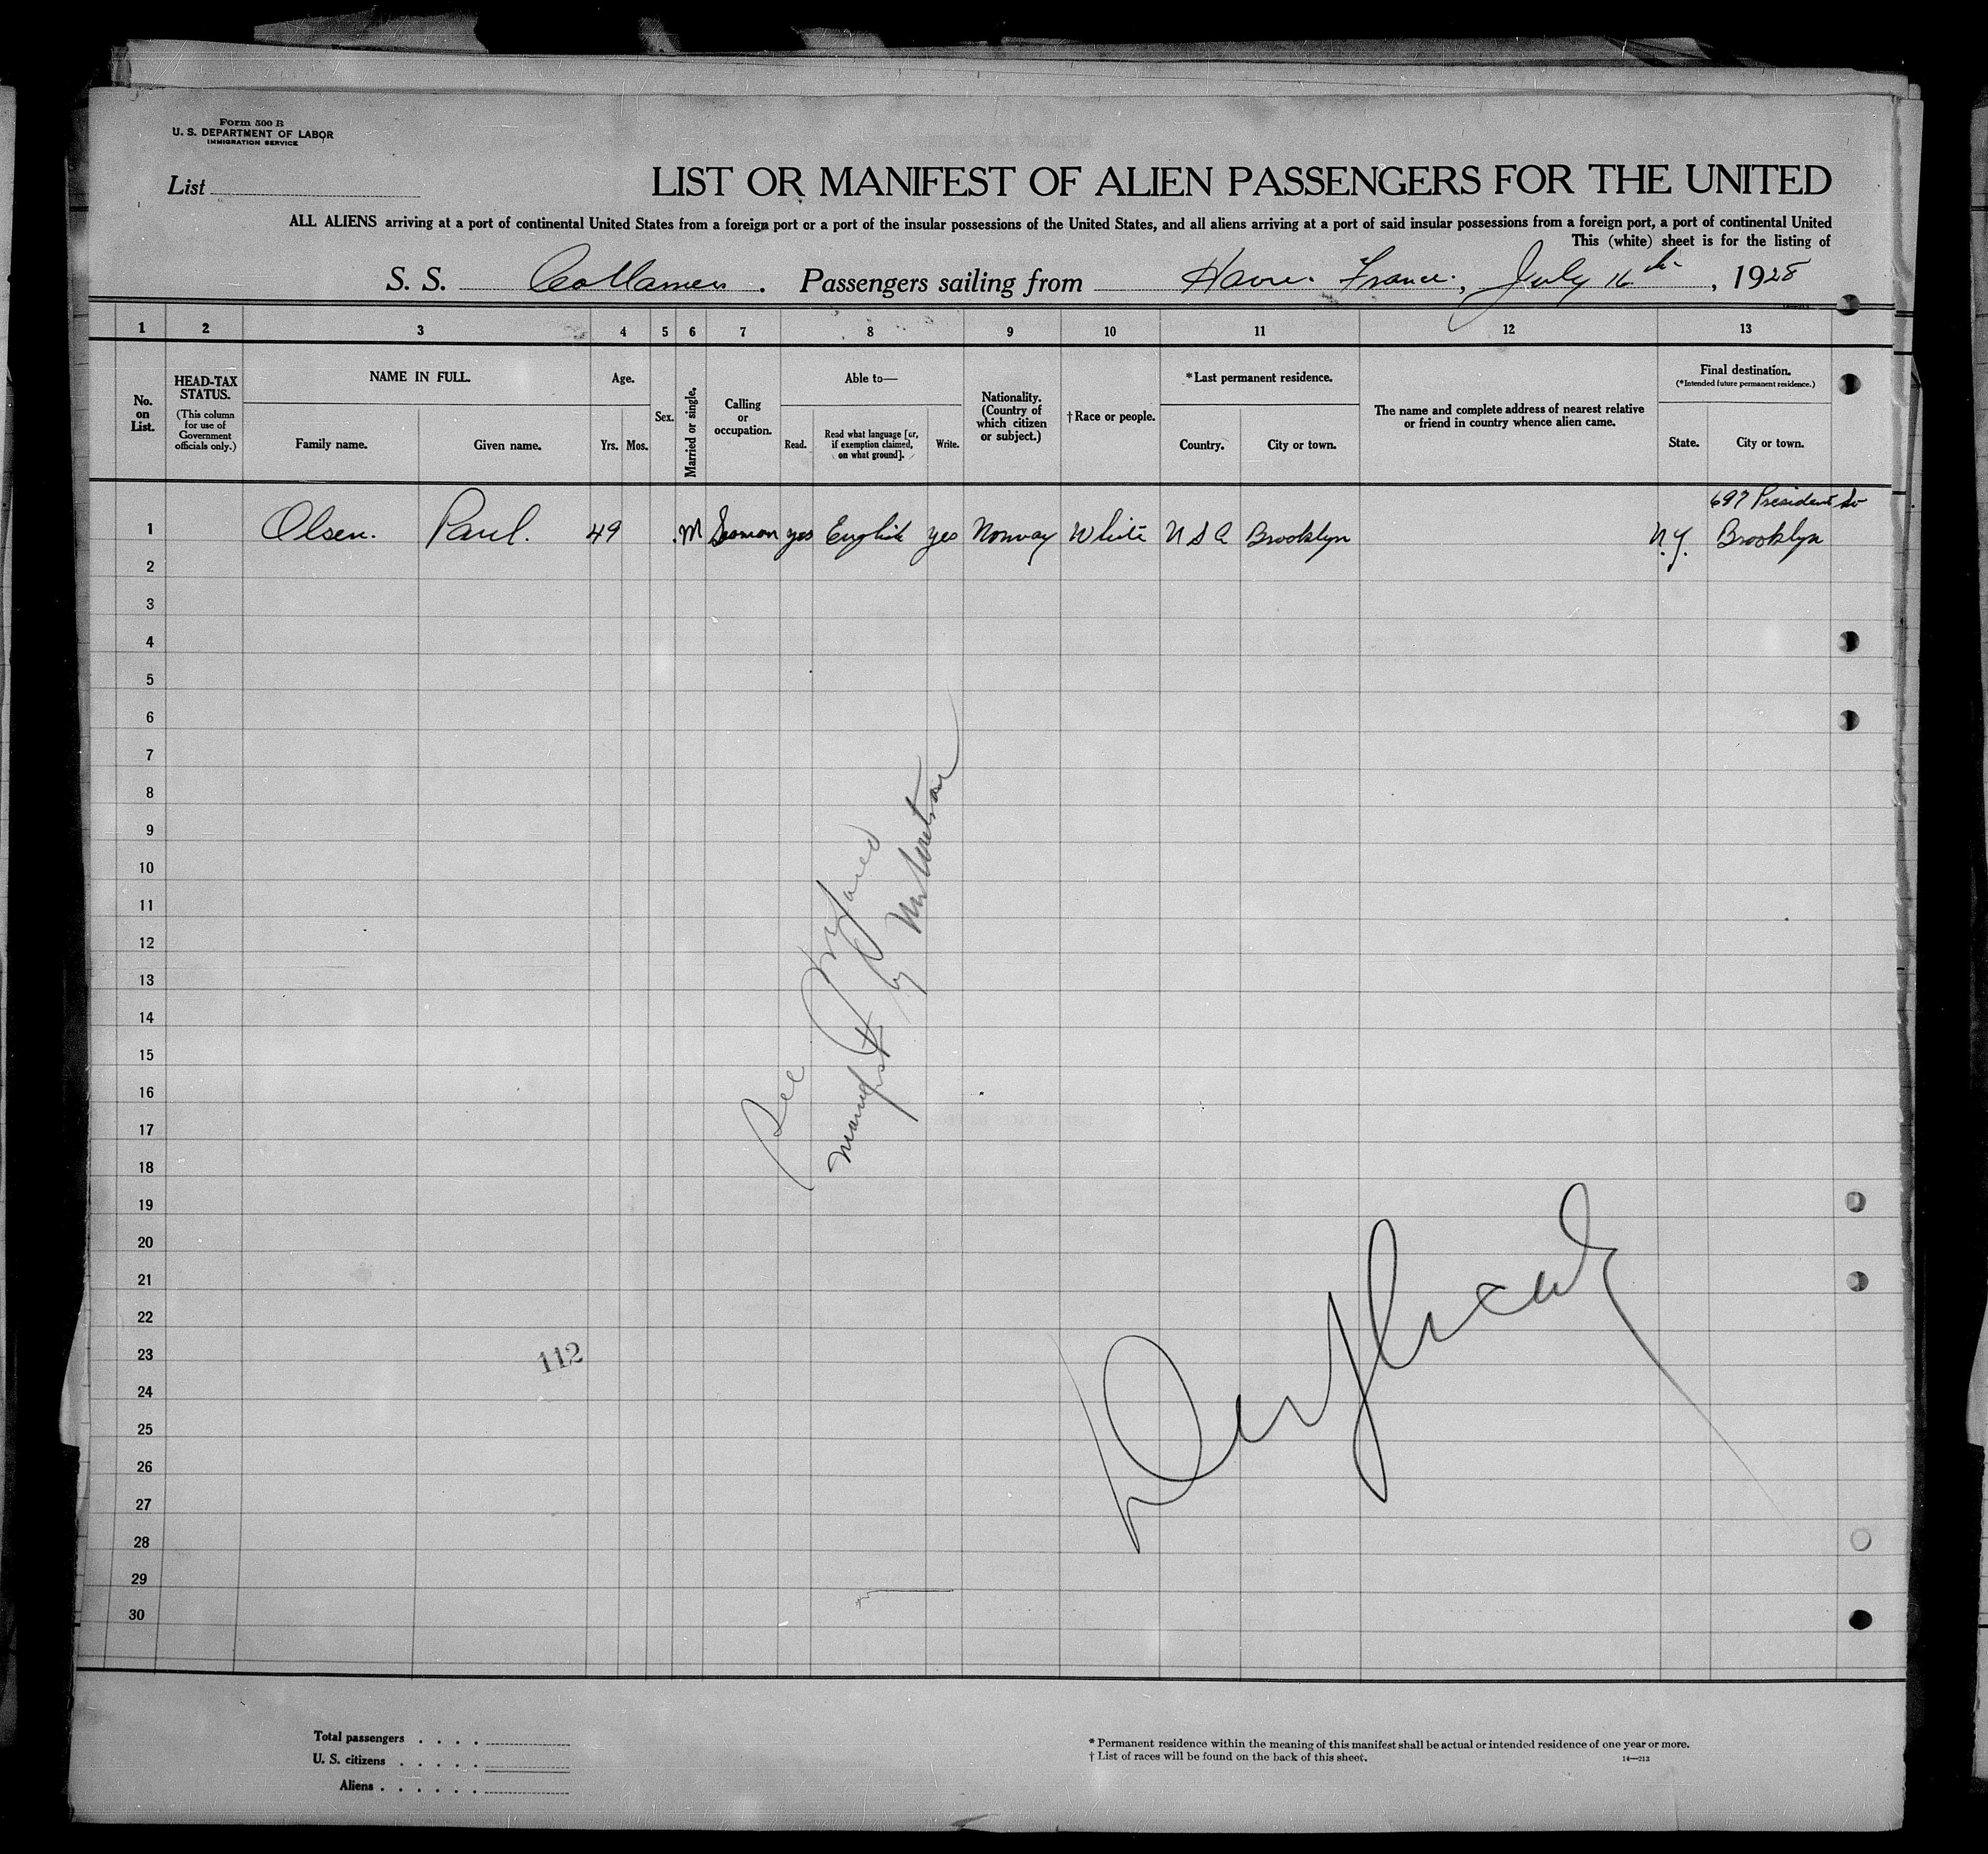 Form 500 B
U. S. DEPARTMENT OF LABOR
IMMIGRATION SERVICE
List
LIST OR MANIFEST OF ALIEN PASSENGERS FOR THE UNITED
ALL ALIENS arriving at a port of continental United States from a foreign port or a port of the insular possessions of the United States, and all aliens arriving at a port of said insular possessions from a foreign port, a port of continental United
This (white) sheet is for the listing of
S. S. Collamer. Passengers sailing from Havre. France., July 16th, 1928
1 2 3 4 5 6 7 8 9 10 11 12 13
No. on List.
HEAD-TAX STATUS.
(This column for use of Government officials only.)
NAME IN FULL.
Family name. Given name.
Age.
Yrs. Mos.
Sex.
Married or single.
Calling or occupation.
Able to—
Read.
Read what language [or, if exemption claimed, on what ground].
Write.
Nationality. (Country of which citizen or subject.)
†Race or people.
*Last permanent residence.
Country. City or town.
The name and complete address of nearest relative or friend in country whence alien came.
Final destination.
(*Intended future permanent residence.)
State. City or town.
697 President St
1 Olsen. Paul. 49 M Seaman yes English yes Norway White U S A Brooklyn N.Y. Brooklyn
2
3
4
5
6
7
8
9
10
11
12
13
14
15
16
17
18
19
20
21
22
23
24
25
26
27
28
29
30
See
manifest by
112
Total passengers
U. S. citizens
Aliens
* Permanent residence within the meaning of this manifest shall be actual or intended residence of one year or more.
† List of races will be found on the back of this sheet.
14—213